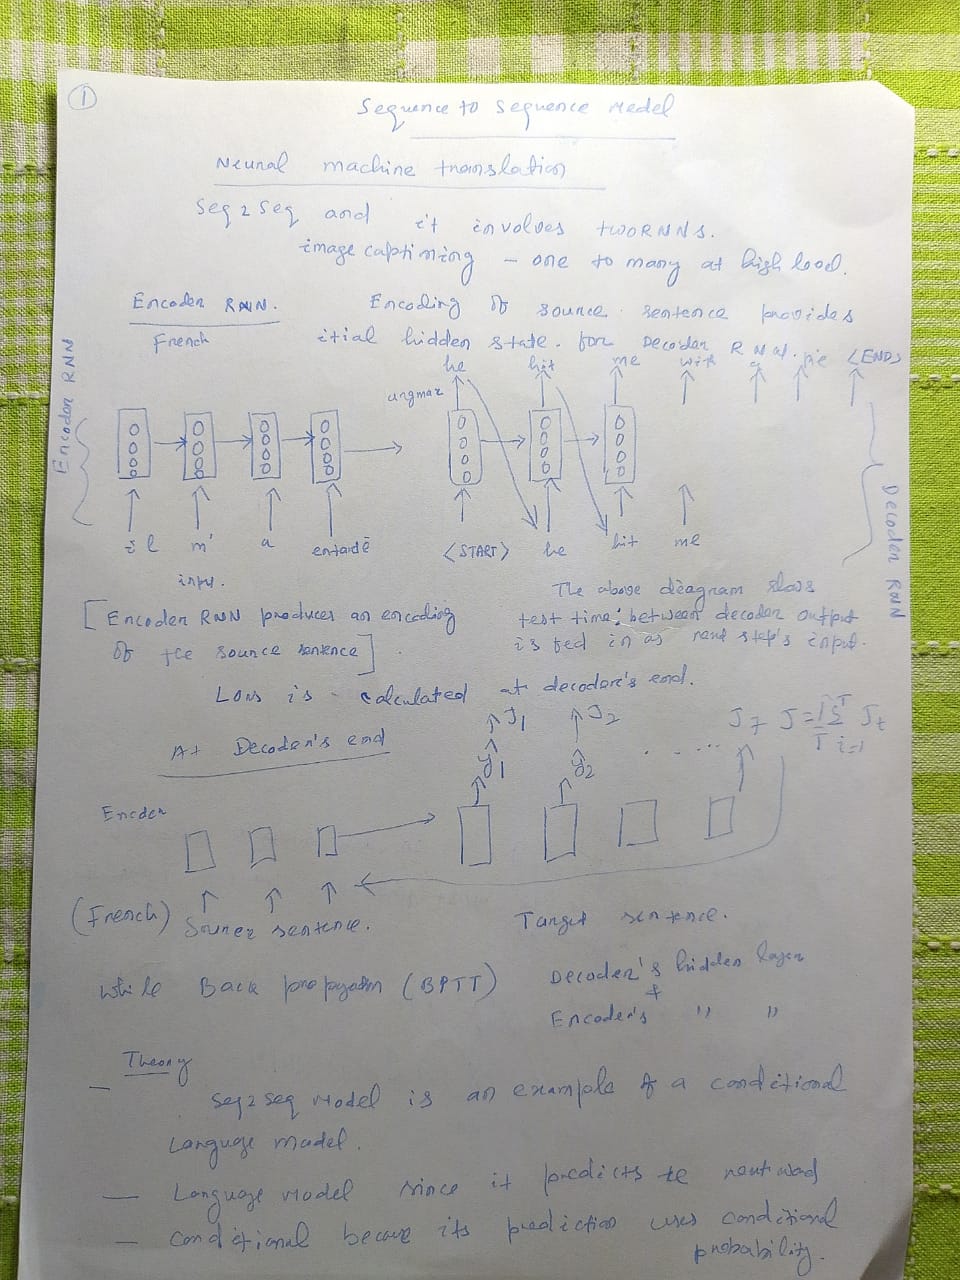 1
Sequence to Sequence Model
Neural machine translation
Seq 2 Seq and it involves two RNNs.
image captioning - one to many at high level.
Encoder RNN.
French
Encoding of source sentence provides
itial hidden state. for Decoder RNN.
Encoder RNN
he hit me with a pie <END>
argmax
il m' a entarté
<START> he hit me
Decoder RNN
input.
[Encoder RNN produces an encoding
of tce source sentence]
The above diagram shows
test time: between decoder output
is fed in as next step's input.
Loss is calculated at decoder's end.
At Decoder's end
J1 J2 J7 J = 1/T Σ i=1 T Jt
ŷ1 ŷ2
Encder
(French) Source sentence.
Target sentence.
While Back propagation (BPTT)
Decoder's hidden layer
&
Encoder's " "
- Theory
Seq 2 Seq Model is an example of a conditional
Language model.
- Language Model since it predicts te next word
- conditional because its prediction uses conditional
probability.